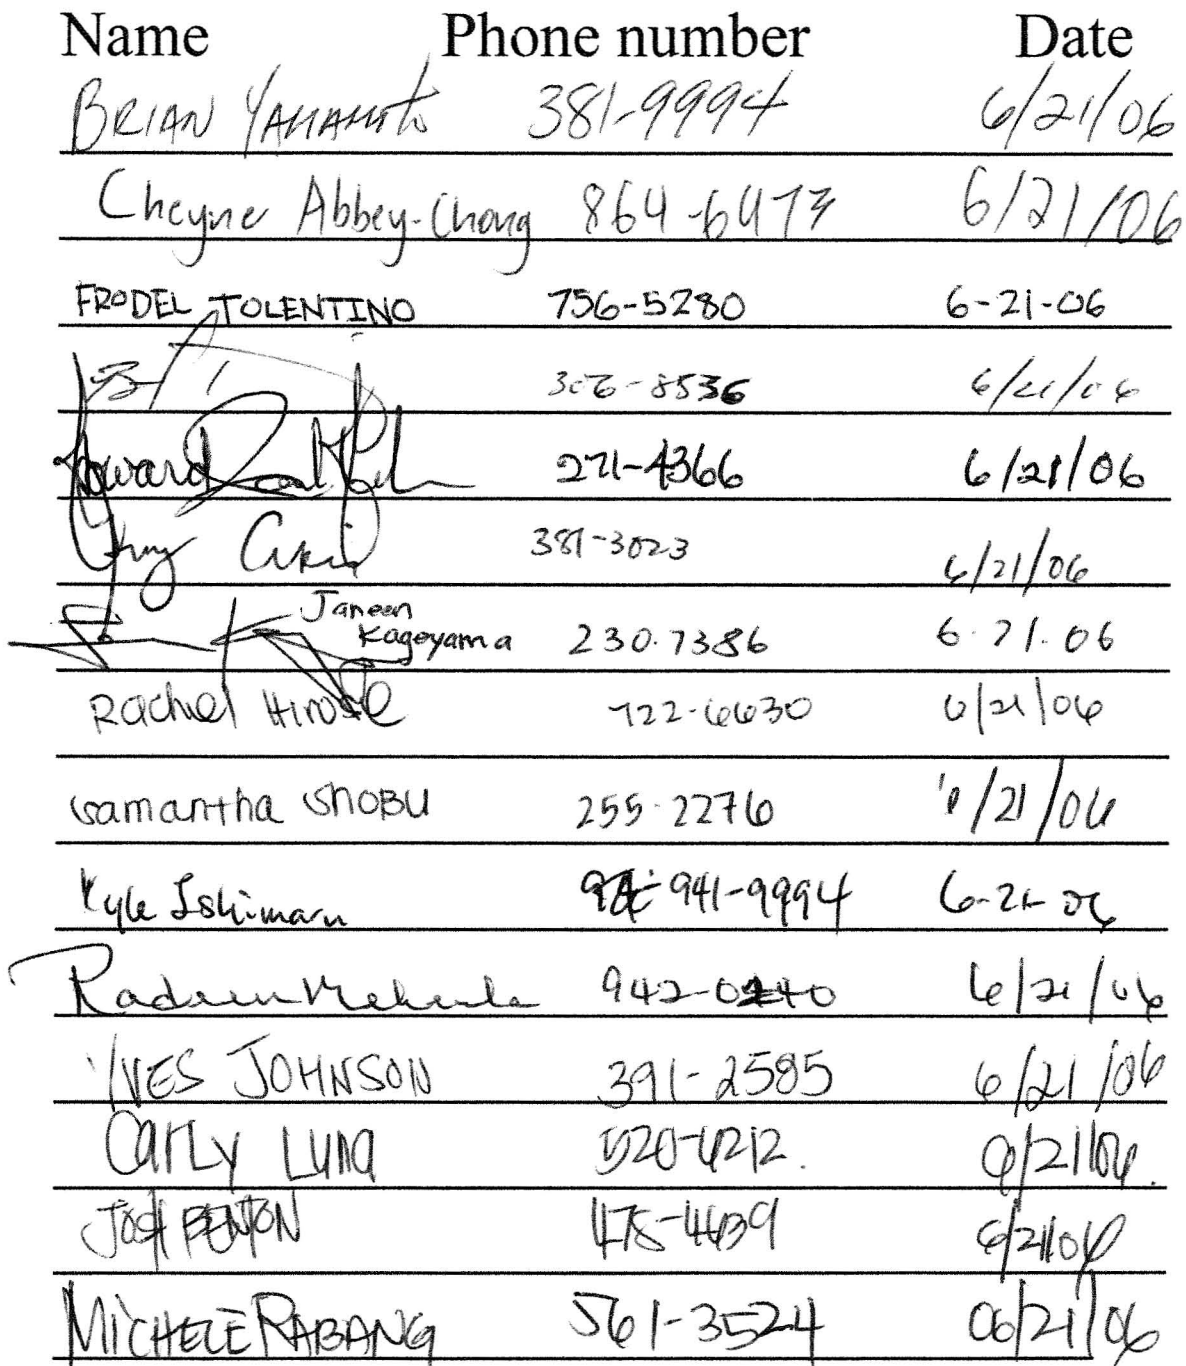 Name Phone number Date
BRIAN YAMAMOTO 381-9994 6/21/06
Cheyne Abbey-Chong 864-6473 6/21/06
FRODEL TOLENTINO 756-5280 6-21-06
6/21/06
Howard 271-4366 6/21/06
381-3023 6/21/06
Janeen Kageyama 230.7386 6.21.06
Rachel Hirose 722-6630 6/21/06
Samantha SHOBU 255-2276 6/21/06
Kyle Ishimaru 941-9994 6-21-06
942-0240 6/21/06
YVES JOHNSON 391-2585 6/21/06
CARLY LUNA 520-4212. 6/21/06.
JOSH BENTON 478-4639 6/21/06
MICHELE RABANG 561-3524 06/21/06